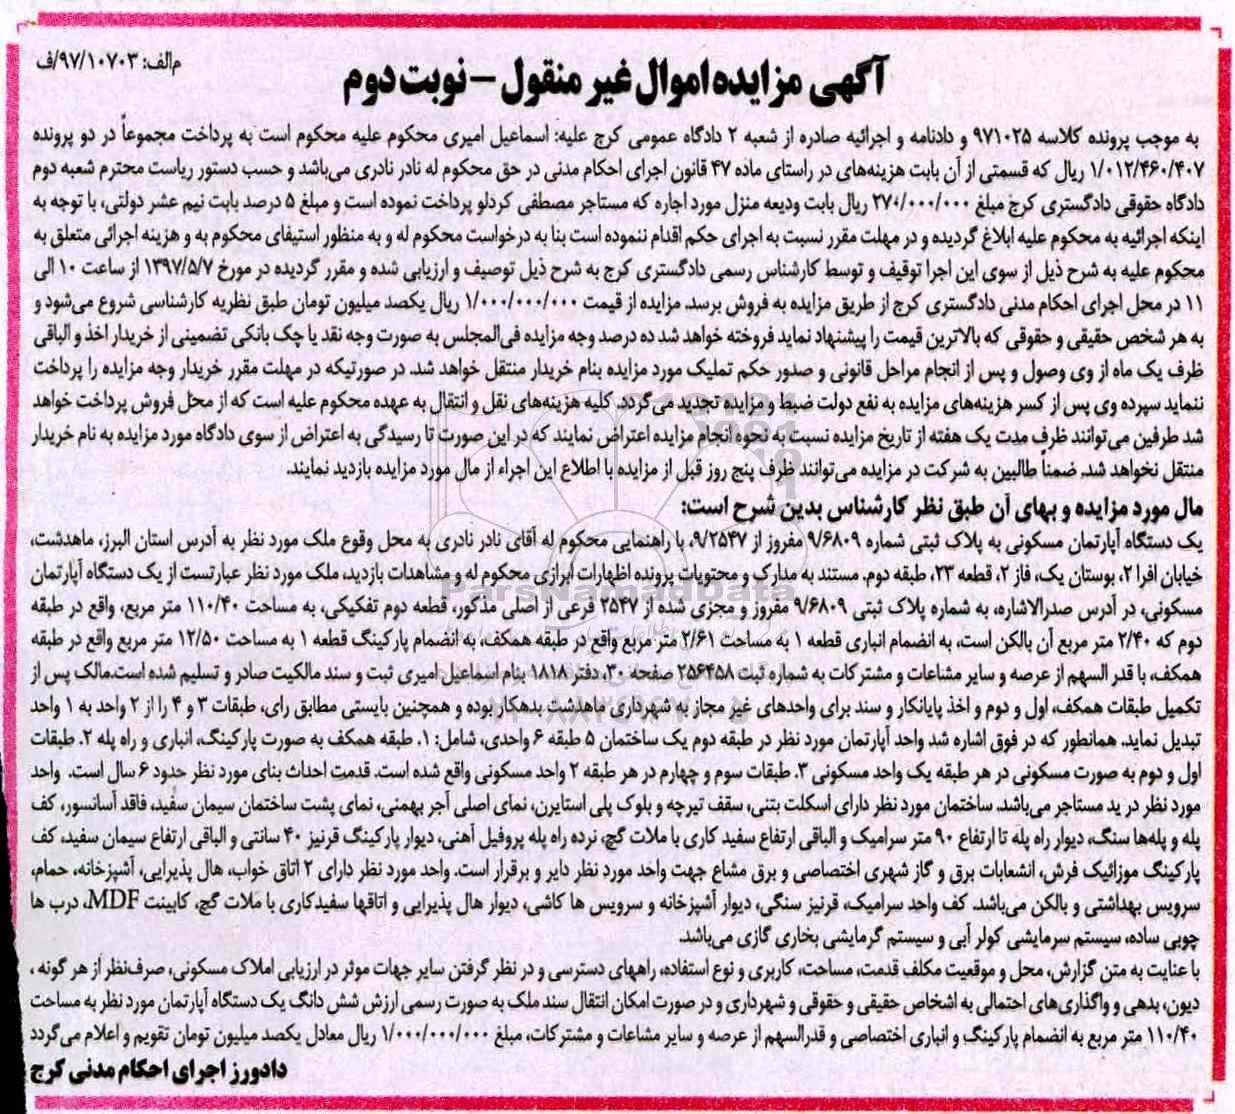 م‌الف: ۹۷/۱۰۷۰۳/ف
آگهی مزایده اموال غیر منقول - نوبت دوم
به موجب پرونده کلاسه ۹۷۱۰۲۵ و دادنامه و اجرائیه صادره از شعبه ۲ دادگاه عمومی کرج علیه: اسماعیل امیری محکوم علیه محکوم است به پرداخت مجموعاً در دو پرونده
۱/۰۱۲/۴۶۰/۴۰۷ ریال که قسمتی از آن بابت هزینه‌های در راستای ماده ۴۷ قانون اجرای احکام مدنی در حق محکوم له نادر نادری می‌باشد و حسب دستور ریاست محترم شعبه دوم
دادگاه حقوقی دادگستری کرج مبلغ ۲۷۰/۰۰۰/۰۰۰ ریال بابت ودیعه منزل مورد اجاره که مستاجر مصطفی کردلو پرداخت نموده است و مبلغ ۵ درصد بابت نیم عشر دولتی، با توجه به
اینکه اجرائیه به محکوم علیه ابلاغ گردیده و در مهلت مقرر نسبت به اجرای حکم اقدام ننموده است بنا به درخواست محکوم له و به منظور استیفای محکوم به و هزینه اجرائی متعلق به
محکوم علیه به شرح ذیل از سوی این اجرا توقیف و توسط کارشناس رسمی دادگستری کرج به شرح ذیل توصیف و ارزیابی شده و مقرر گردیده در مورخ ۱۳۹۷/۵/۷ از ساعت ۱۰ الی
۱۱ در محل اجرای احکام مدنی دادگستری کرج از طریق مزایده به فروش برسد. مزایده از قیمت ۱/۰۰۰/۰۰۰/۰۰۰ ریال یکصد میلیون تومان طبق نظریه کارشناسی شروع می‌شود و
به هر شخص حقیقی و حقوقی که بالاترین قیمت را پیشنهاد نماید فروخته خواهد شد ده درصد وجه مزایده فی‌المجلس به صورت وجه نقد یا چک بانکی تضمینی از خریدار اخذ و الباقی
ظرف یک ماه از وی وصول و پس از انجام مراحل قانونی و صدور حکم تملیک مورد مزایده بنام خریدار منتقل خواهد شد. در صورتیکه در مهلت مقرر خریدار وجه مزایده را پرداخت
ننماید سپرده وی پس از کسر هزینه‌های مزایده به نفع دولت ضبط و مزایده تجدید می‌گردد. کلیه هزینه‌های نقل و انتقال به عهده محکوم علیه است که از محل فروش پرداخت خواهد
شد طرفین می‌توانند ظرف مدت یک هفته از تاریخ مزایده نسبت به نحوه انجام مزایده اعتراض نمایند که در این صورت تا رسیدگی به اعتراض از سوی دادگاه مورد مزایده به نام خریدار
منتقل نخواهد شد. ضمناً طالبین به شرکت در مزایده می‌توانند ظرف پنج روز قبل از مزایده با اطلاع این اجراء از مال مورد مزایده بازدید نمایند.
مال مورد مزایده و بهای آن طبق نظر کارشناس بدین شرح است:
یک دستگاه آپارتمان مسکونی به پلاک ثبتی شماره ۹/۶۸۰۹ مفروز از ۹/۲۵۴۷، با راهنمایی محکوم له آقای نادر نادری به محل وقوع ملک مورد نظر به آدرس استان البرز، ماهدشت،
خیابان افرا ۲، بوستان یک، فاز ۲، قطعه ۲۳، طبقه دوم. مستند به مدارک و محتویات پرونده اظهارات ابرازی محکوم له و مشاهدات بازدید، ملک مورد نظر عبارتست از یک دستگاه آپارتمان
مسکونی، در آدرس صدرالاشاره، به شماره پلاک ثبتی ۹/۶۸۰۹ مفروز و مجزی شده از ۲۵۴۷ فرعی از اصلی مذکور، قطعه دوم تفکیکی، به مساحت ۱۱۰/۴۰ متر مربع، واقع در طبقه
دوم که ۲/۴۰ متر مربع آن بالکن است، به انضمام انباری قطعه ۱ به مساحت ۲/۶۱ متر مربع واقع در طبقه همکف، به انضمام پارکینگ قطعه ۱ به مساحت ۱۲/۵۰ متر مربع واقع در طبقه
همکف، با قدر السهم از عرصه و سایر مشاعات و مشترکات به شماره ثبت ۲۵۶۴۵۸ صفحه ۳۰، دفتر ۱۸۱۸ بنام اسماعیل امیری ثبت و سند مالکیت صادر و تسلیم شده است.مالک پس از
تکمیل طبقات همکف، اول و دوم و اخذ پایانکار و سند برای واحدهای غیر مجاز به شهرداری ماهدشت بدهکار بوده و همچنین بایستی مطابق رای، طبقات ۳ و ۴ را از ۲ واحد به ۱ واحد
تبدیل نماید. همانطور که در فوق اشاره شد واحد آپارتمان مورد نظر در طبقه دوم یک ساختمان ۵ طبقه ۶ واحدی، شامل: ۱. طبقه همکف به صورت پارکینگ، انباری و راه پله ۲. طبقات
اول و دوم به صورت مسکونی در هر طبقه یک واحد مسکونی ۳. طبقات سوم و چهارم در هر طبقه ۲ واحد مسکونی واقع شده است. قدمت احداث بنای مورد نظر حدود ۶ سال است. واحد
مورد نظر در ید مستاجر می‌باشد. ساختمان مورد نظر دارای اسکلت بتنی، سقف تیرچه و بلوک پلی استایرن، نمای اصلی آجر بهمنی، نمای پشت ساختمان سیمان سفید، فاقد آسانسور، کف
پله و پله‌ها سنگ، دیوار راه پله تا ارتفاع ۹۰ متر سرامیک و الباقی ارتفاع سفید کاری با ملات گچ، نرده راه پله پروفیل آهنی، دیوار پارکینگ قرنیز ۴۰ سانتی و الباقی ارتفاع سیمان سفید، کف
پارکینگ موزائیک فرش، انشعابات برق و گاز شهری اختصاصی و برق مشاع جهت واحد مورد نظر دایر و برقرار است. واحد مورد نظر دارای ۲ اتاق خواب، هال پذیرایی، آشپزخانه، حمام،
سرویس بهداشتی و بالکن می‌باشد. کف واحد سرامیک، قرنیز سنگی، دیوار آشپزخانه و سرویس ها کاشی، دیوار هال پذیرایی و اتاقها سفیدکاری با ملات گچ، کابینت MDF، درب ها
چوبی ساده، سیستم سرمایشی کولر آبی و سیستم گرمایشی بخاری گازی می‌باشد.
با عنایت به متن گزارش، محل و موقعیت مکلف قدمت، مساحت، کاربری و نوع استفاده، راههای دسترسی و در نظر گرفتن سایر جهات موثر در ارزیابی املاک مسکونی، صرف‌نظر از هر گونه ،
دیون، بدهی و واگذاری‌های احتمالی به اشخاص حقیقی و حقوقی و شهرداری و در صورت امکان انتقال سند ملک به صورت رسمی ارزش شش دانگ یک دستگاه آپارتمان مورد نظر به مساحت
۱۱۰/۴۰ متر مربع به انضمام پارکینگ و انباری اختصاصی و قدرالسهم از عرصه و سایر مشاعات و مشترکات، مبلغ ۱/۰۰۰/۰۰۰/۰۰۰ ریال معادل یکصد میلیون تومان تقویم و اعلام می‌گردد
دادورز اجرای احکام مدنی کرج
ParsNamadData